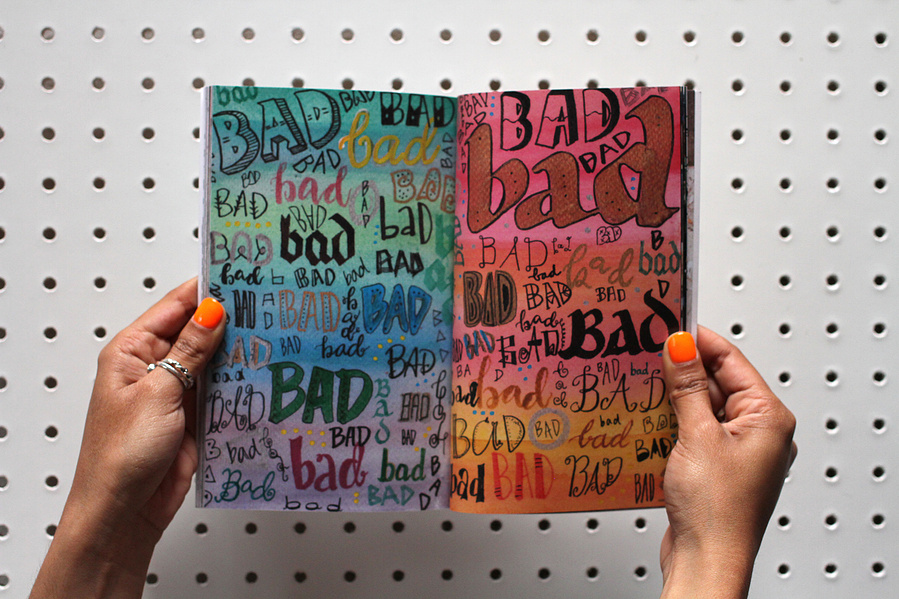 bad
BAD
BAD
BAD
bad
BAD
BAD
bad
BAD
BAD
BAD
bad
BAD
BAD
bad
bad
BAD
bad
BAD
BAD
bad
BAD
BAD
bad
BAD
BAD
BAD
bad
BAD
BAD
BAD
BAD
bad
bad
bad
Bad
BAD
bad
BAD
BAD
bad
BAD
BAD
bad
bad
bad
BAD
BAD
BAD
bad
BAD
BAD
BAD
bad
BAD
bad
BAD
bad
BAD
bad
BAD
bad
BAD
BAD
bad
BAD
BAD
BAD